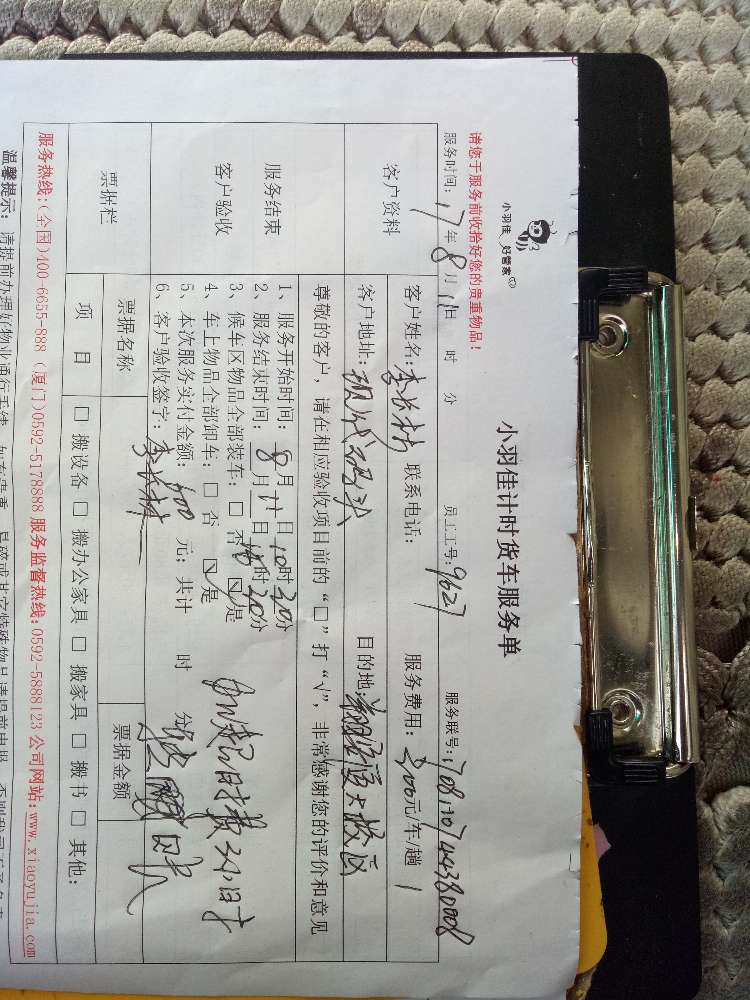 小羽佳 好管家
小羽佳计时货车服务单
请您于服务前收拾好您的贵重物品！
服务时间：17年8月11日 时 分 员工工号：9627 服务联号：
客户资料
客户姓名：李长林 联系电话： 服务费用：300元/车/趟
客户地址：现代码头 目的地：
服务结束
客户验收
尊敬的客户，请在相应验收项目前的“□”打“√”，非常感谢您的评价和意见
1、服务开始时间：8月11日10时20分
2、服务结束时间：8月11日 时20分
3、候车区物品全部装车：□ 否 ☑是
4、车上物品全部卸车：□ 否 ☑是
5、本次服务实付金额： 元；共计 时 分
6、客户验收签字：李长林
票据栏
票据名称 票据金额
项 目 □ 搬设备 □ 搬办公家具 □ 搬家具 □ 搬书 □ 其他：
服务热线：(全国)400-6655-888 (厦门)0592-5178888 服务监督热线：0592-5888123 公司网站：www.xiaoyujia.com
温馨提示：请提前办理好物业通行手续